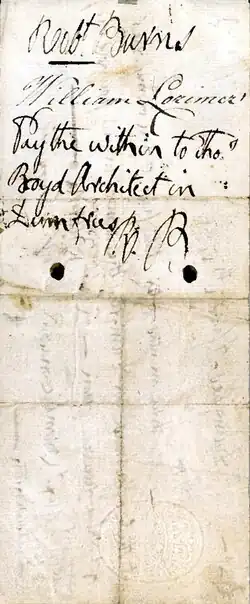 Robt Burns
William Lorimer
Pay the within to Thos
Boyd Architect in
Dumfries